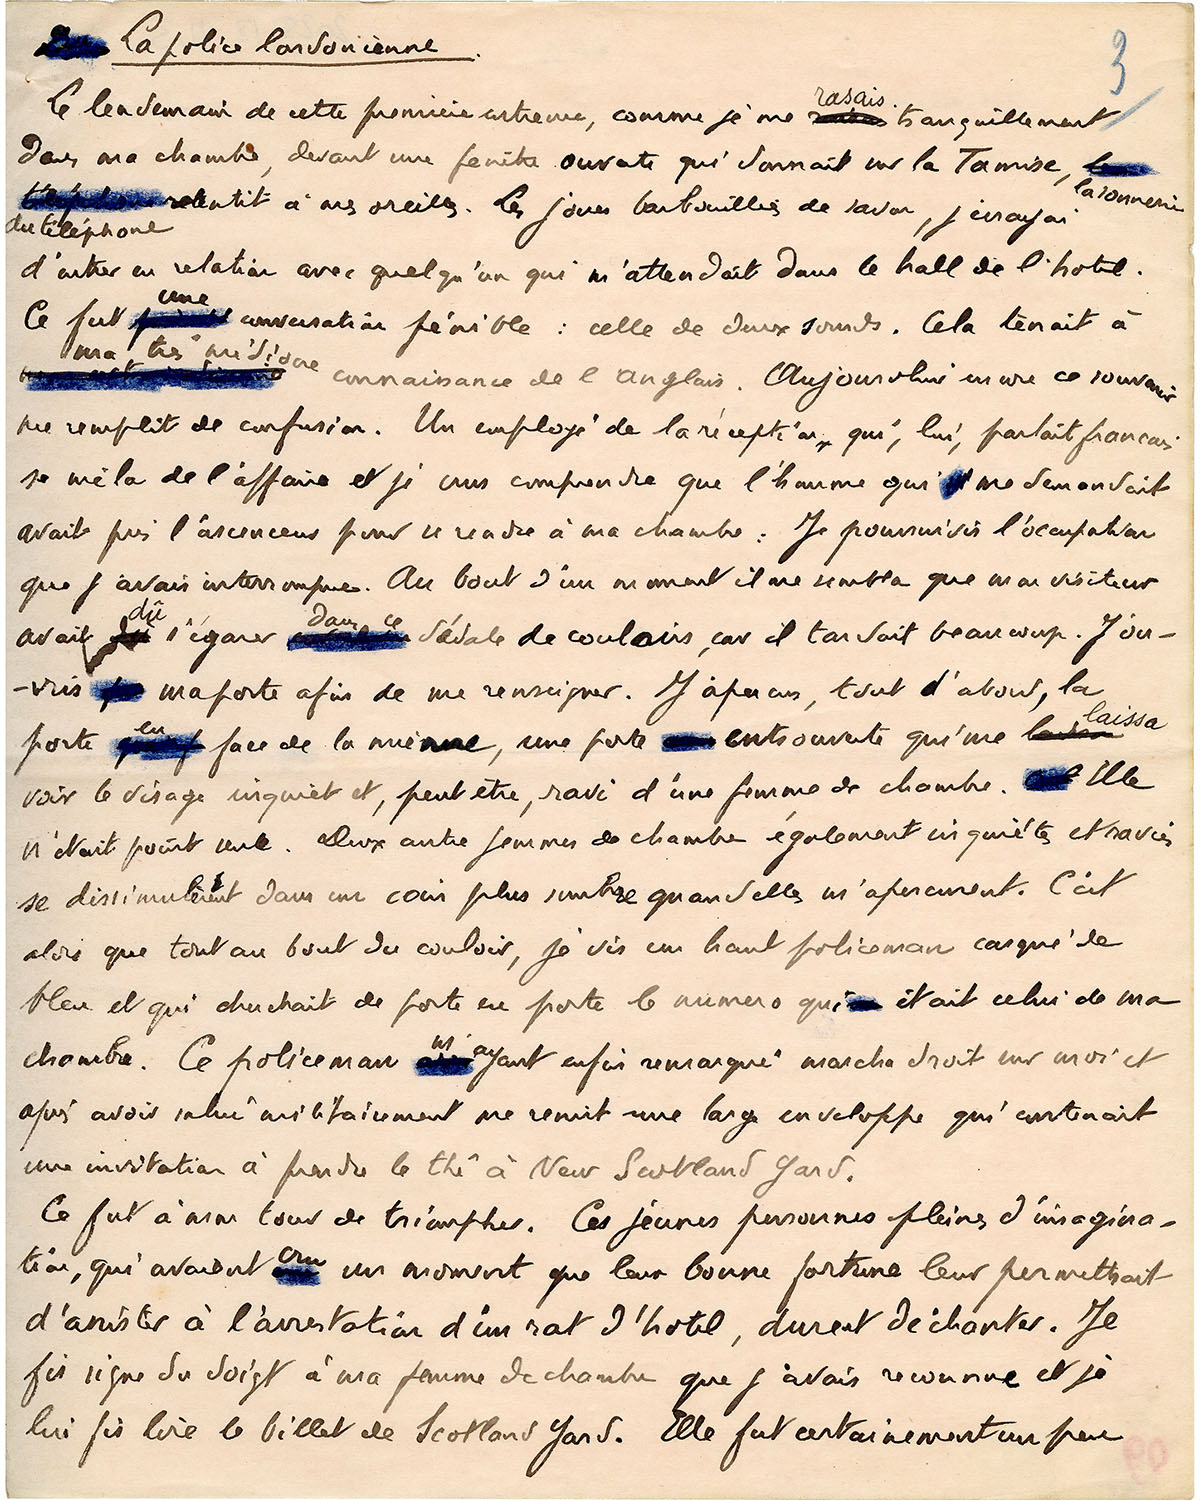 La police londonienne.
3
Le lendemain de cette première entrevue, comme je me rasais tranquillement
dans ma chambre, devant une fenêtre ouverte qui donnait sur la Tamise, la sonnerie
du téléphone retentit à mes oreilles. Les joues barbouillées de savon, j'essayai
d'entrer en relation avec quelqu'un qui m'attendait dans le hall de l'hotel.
Ce fut une conversation pénible : celle de deux sourds. Cela tenait à
ma très médiocre connaissance de l'anglais. Aujourd'hui encore ce souvenir
me remplit de confusion. Un employé de la réception, qui, lui, parlait francais
se mêla de l'affaire et je crus comprendre que l'homme qui me demandait
avait pris l'ascenceur pour se rendre à ma chambre : Je poursuivis l'occupation
que j'avais interrompue. Au bout d'un moment il me sembla que mon visiteur
avait dû s'égarer dans ce dédale de couloirs, car il tardait beaucoup. J'ou-
-vris ma porte afin de me renseigner. J'aperçus, tout d'abord, la
porte en face de la mienne, une porte entrouverte qui me laissa
voir le visage inquiet et, peut être, ravi d'une femme de chambre. Elle
n'était point seule. Deux autre femmes de chambre également inquiétes et ravies
se dissimulèrent dans un coin plus sombre quand elles m'aperçurent. C'est
alors que tout au bout du couloir, je vis un haut policeman casqué de
bleu et qui cherchait de porte en porte le numero qui était celui de ma
chambre. Ce policeman m'ayant enfin remarqué marcha droit sur moi et
après avoir salué militairement me remit une large enveloppe qui contenait
une invitation à prendre le thé à New Scotland Yard.
Ce fut à mon tour de triompher. Ces jeunes personnes pleines d'imagina-
tion, qui avaient cru un moment que leur bonne fortune leur permettrait
d'assister à l'arrestation d'un rat d'hotel, durent déchanter. Je
fis signe du doigt à ma femme de chambre que j'avais reconnue et je
lui fis lire le billet de Scotland Yard. Elle fut certainement un peu